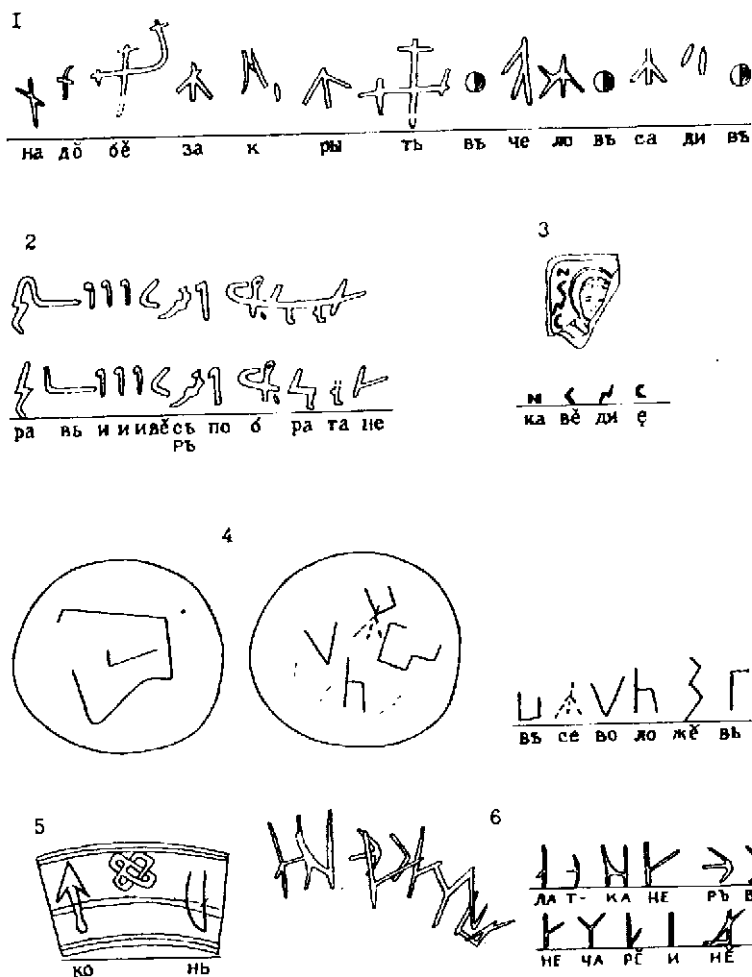 I
на дŏ бě за к ры ть въ че ло въ са ди въ
2
ра вь и и и вě сь по б ра та не
РЪ
3
ка вě ди ę
4
въ се во ло жě вь
5
ко нь
6
ЛА Т- КА НЕ РЪ В
НЕ ЧА РĚ И НĚ